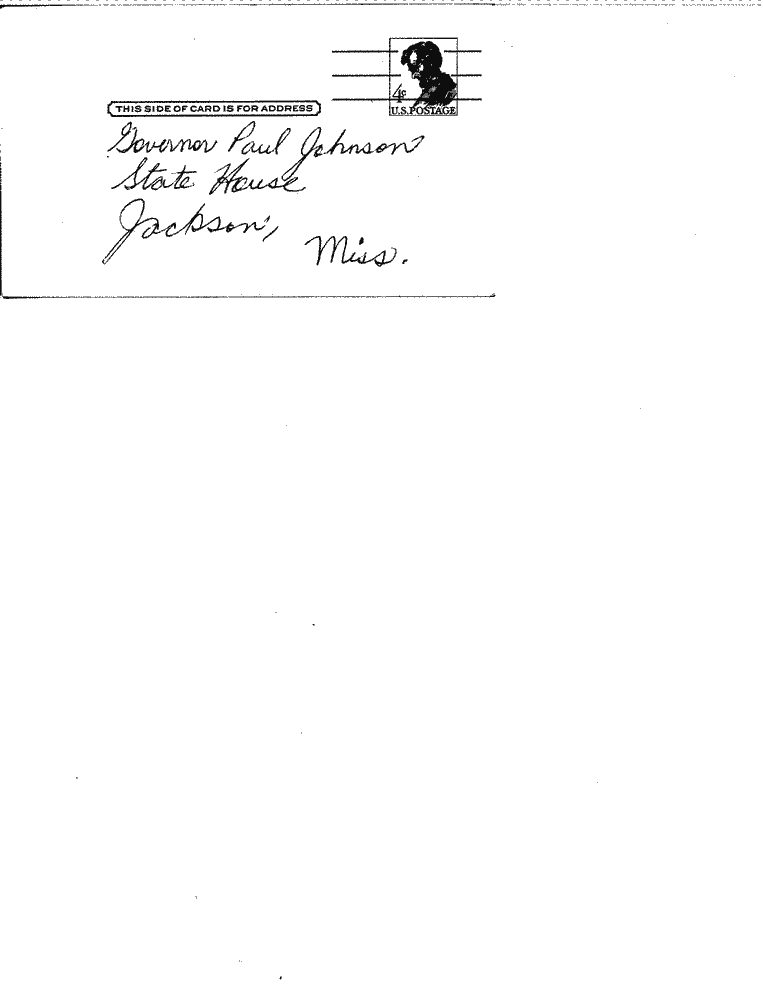 4¢
U.S. POSTAGE
THIS SIDE OF CARD IS FOR ADDRESS
Governor Paul Johnson
State House
Jackson,
Miss.